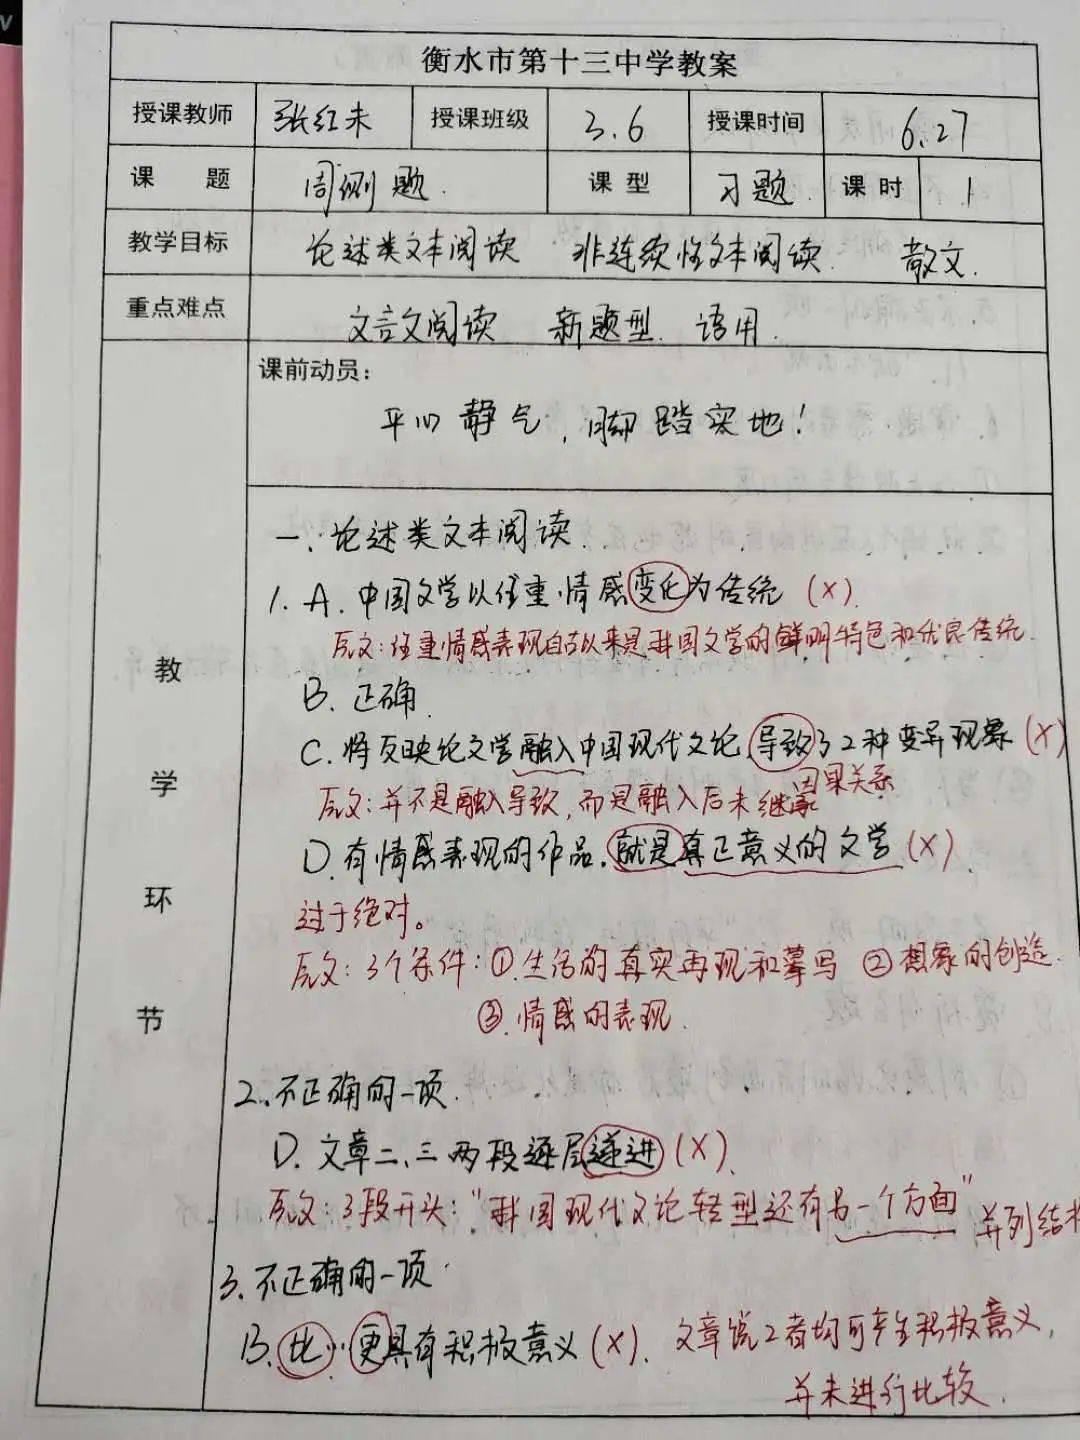 衡水市第十三中学教案
授课教师 张红未 授课班级 3.6 授课时间 6.27
课题 周测题. 课型 习题. 课时 1
教学目标 论述类文本阅读 非连续性文本阅读. 散文.
重点难点 文言文阅读 新题型. 语用.
课前动员:
平心静气,脚踏实地!
教学环节
一.论述类文本阅读.
1. A. 中国文学以注重情感变化为传统 (X).
原文:注重情感表现自古以来是我国文学的鲜明特色和优良传统.
B. 正确.
C. 将反映论文学融入中国现代文论,导致了2种变异现象 (X)
因果关系
原文:并不是融入导致,而是融入后未继承
D. 有情感表现的作品,就是真正意义的文学 (X).
过于绝对。
原文:3个条件:①.生活的真实再现和摹写 ②想象的创造.
③.情感的表现.
2.不正确的一项.
D. 文章二、三两段逐层递进 (X).
原文:3段开头:"我国现代文论转型还有另一个方面" 并列结构
3.不正确的一项.
B.比…更具有积极意义 (X). 文章说2者均可产生积极意义,
并未进行比较.